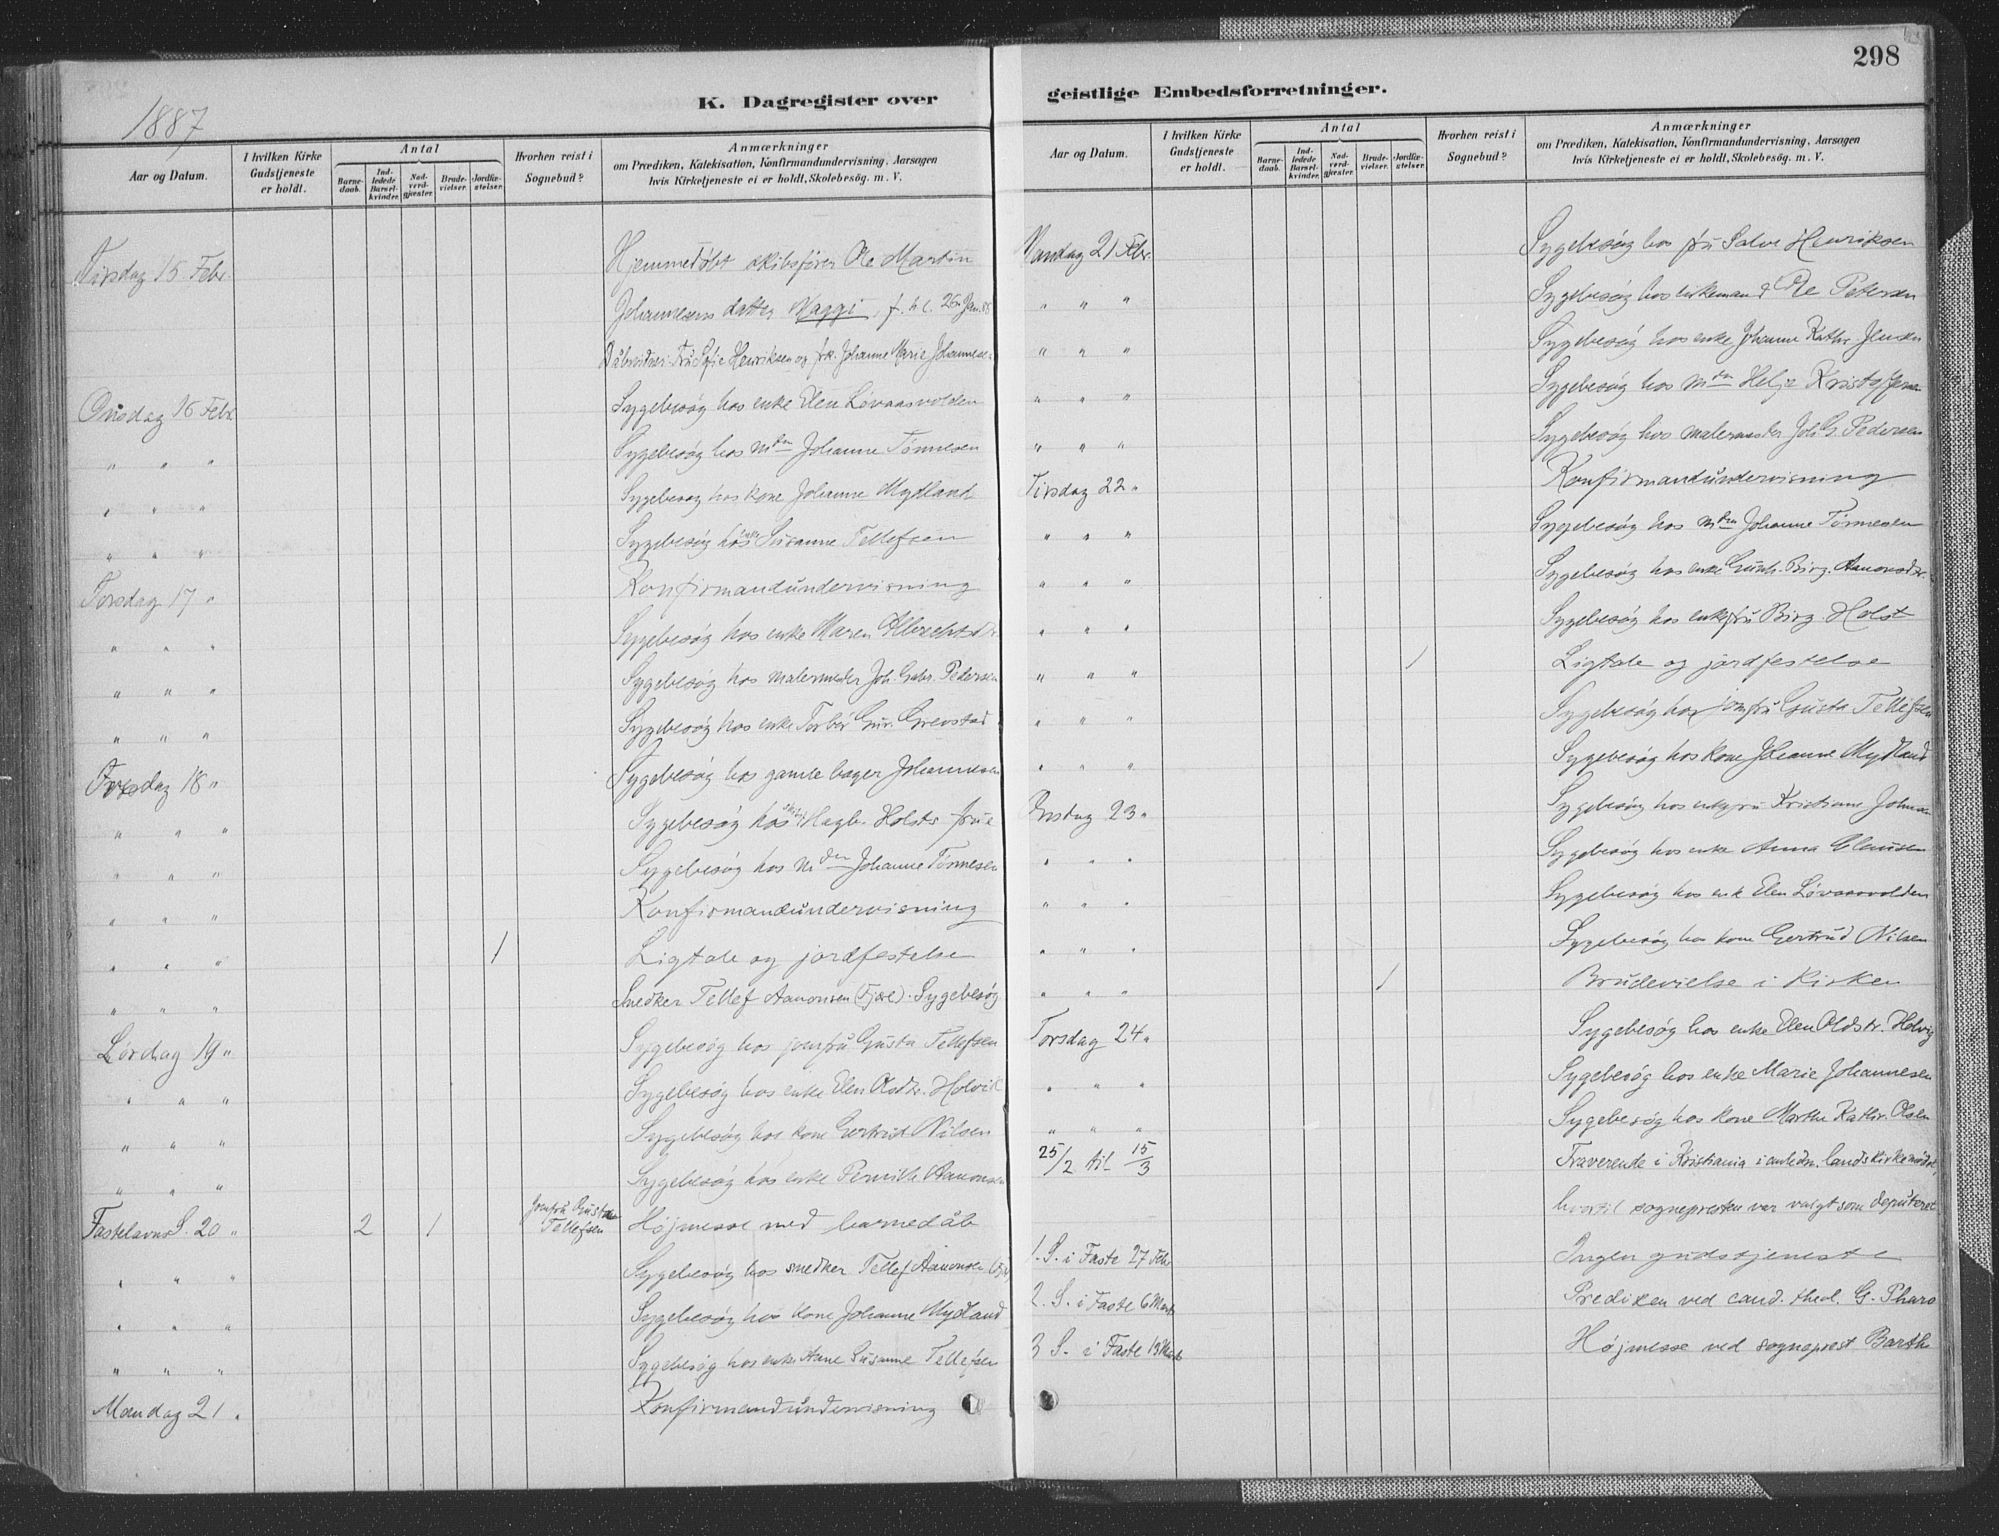 298
K. Dagregister over
1887
Aar og Datum.
I hvilken Kirke Gudstjeneste er holdt.
Antal
Barnedaab.
Indledede Barselkvinder.
Nadverdgjæster.
Brudevielser.
Jordfæstelser.
Hvorhen reist i Sognebud?
Anmærkninger
om Prædiken, Katekisation, Konfirmandundervisning, Aarsagen
hvis Kirketjeneste ei er holdt, Skolebesøg. m. V.
Tirsdag 15 Febr. Hjemmedøbt skibsfører Ole Martin
Johannesens datter Maggi, f. h. l. 26 Jan. 88
Dåbvidner: Fru Sofie Henriksen og frk. Johanne Marie Johannesen
Onsdag 16 Febr. Sygebesøg hos enke Elen Løvaasvolden
" " " Sygebesøg hos mdm Johanne Tønnesen
" " " Sygebesøg hos kone Johanne Mydland
" " " Sygebesøg hos enke Susanne Tellefsen
Torsdag 17 " Konfirmandundervisning
" " " Sygebesøg hos enke Maren Albrechtsdr
" " " Sygebesøg hos malermester Joh. Gabr. Pedersen
" " " Sygebesøg hos enke Torbør Gur. Grevstad
Fredag 18 " Sygebesøg hos gamle bager Johannesen
" " " Sygebesøg hos skibsf. Hagb. Holsts frue
" " " Sygebesøg hos mdm Johanne Tønnesen
" " " Konfirmandundervisning
" " " 1 Ligtale og jordfestelse
" " " Snedker Tellef Aanonsen (Fjære). Sygebesøg
Lørdag 19 " Sygebesøg hos jomfru Gusta Tellefsen
" " " Sygebesøg hos enke Elen Olsdtr. Holvik
" " " Sygebesøg hos kone Gertrud Nilsen
" " " Sygebesøg hos enke Pernille Aanonsen
Fastelavns S. 20 " 2 1 Jomfru Gusta Tellefsen Højmesse med barnedåb
" " " Sygebesøg hos snedker Tellef Aanonsen
" " " Sygebesøg hos kone Johanne Mydland
" " " Sygebesøg hos enke Anne Susanne Tellefsen
Mandag 21 " Konfirmandundervisning
geistlige Embedsforretninger.
Aar og Datum.
I hvilken Kirke Gudstjeneste er holdt.
Antal
Barnedaab.
Indledede Barselkvinder.
Nadverdgjæster.
Brudevielser.
Jordfæstelser.
Hvorhen reist i Sognebud?
Anmærkninger
om Prædiken, Katekisation, Konfirmandundervisning, Aarsagen
hvis Kirketjeneste ei er holdt, Skolebesøg. m. V.
Mandag 21 Febr. Sygebesøg hos fru Salve Henriksen
" " " Sygebesøg hos Ole Petersen
" " " Sygebesøg hos enke Johanne Kathr. Jensen
" " " Sygebesøg hos mdm Helje Kristoffersen
" " " Sygebesøg hos malermester Joh. G. Pedersen
Tirsdag 22 " Konfirmandundervisning
" " " Sygebesøg hos mdm Johanne Tønnesen
" " " Sygebesøg hos enke Gunh. Birg. Aanonsdr.
" " " Sygebesøg hos enkefru Birg. Holst
" " " 1 Ligtale og jordfestelse
" " " Sygebesøg hos jomfru Gusta Tellefsen
" " " Sygebesøg hos kone Johanne Mydland
Onsdag 23 " Sygebesøg hos enkefru Kristiane Johnsen
" " " Sygebesøg hos enke Anna Clausen
" " " Sygebesøg hos enke Elen Løvaasvolden
" " " Sygebesøg hos kone Gertrud Nilsen
" " " 1 Brudevielse i Kirken
Torsdag 24 " Sygebesøg hos enke Elen Oldstr. Holvig
" " " Sygebesøg hos enke Marie Johannesen
" " " Sygebesøg hos kone Marthe Kathr. Olsen
25/2 til 15/3 Fraværende i Kristiania i anledn. landskirkemødet,
hvortil sognepresten var valgt som deputeret
1. S. i Faste 27 Febr Ingen gudstjeneste
2. S. i Faste 6 Marts Prediken ved cand. theol. G. Pharo
3 S. i Faste 13 Marts Højmesse ved sogneprest Barth